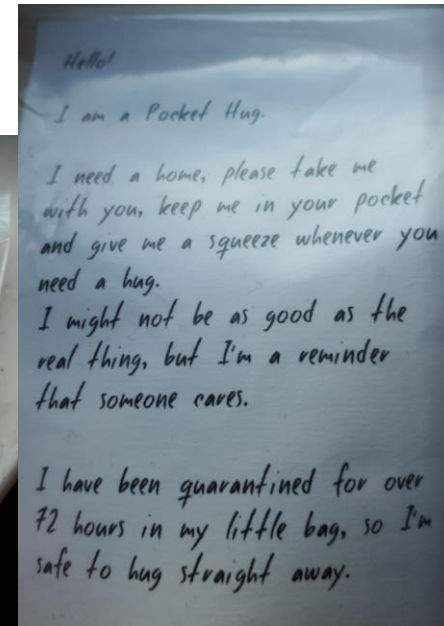 Hello!
I am a Pocket Hug.
I need a home, please take me
with you, keep me in your pocket
and give me a squeeze whenever you
need a hug.
I might not be as good as the
real thing, but I'm a reminder
that someone cares.
I have been quarantined for over
72 hours in my little bag, so I'm
safe to hug straight away.